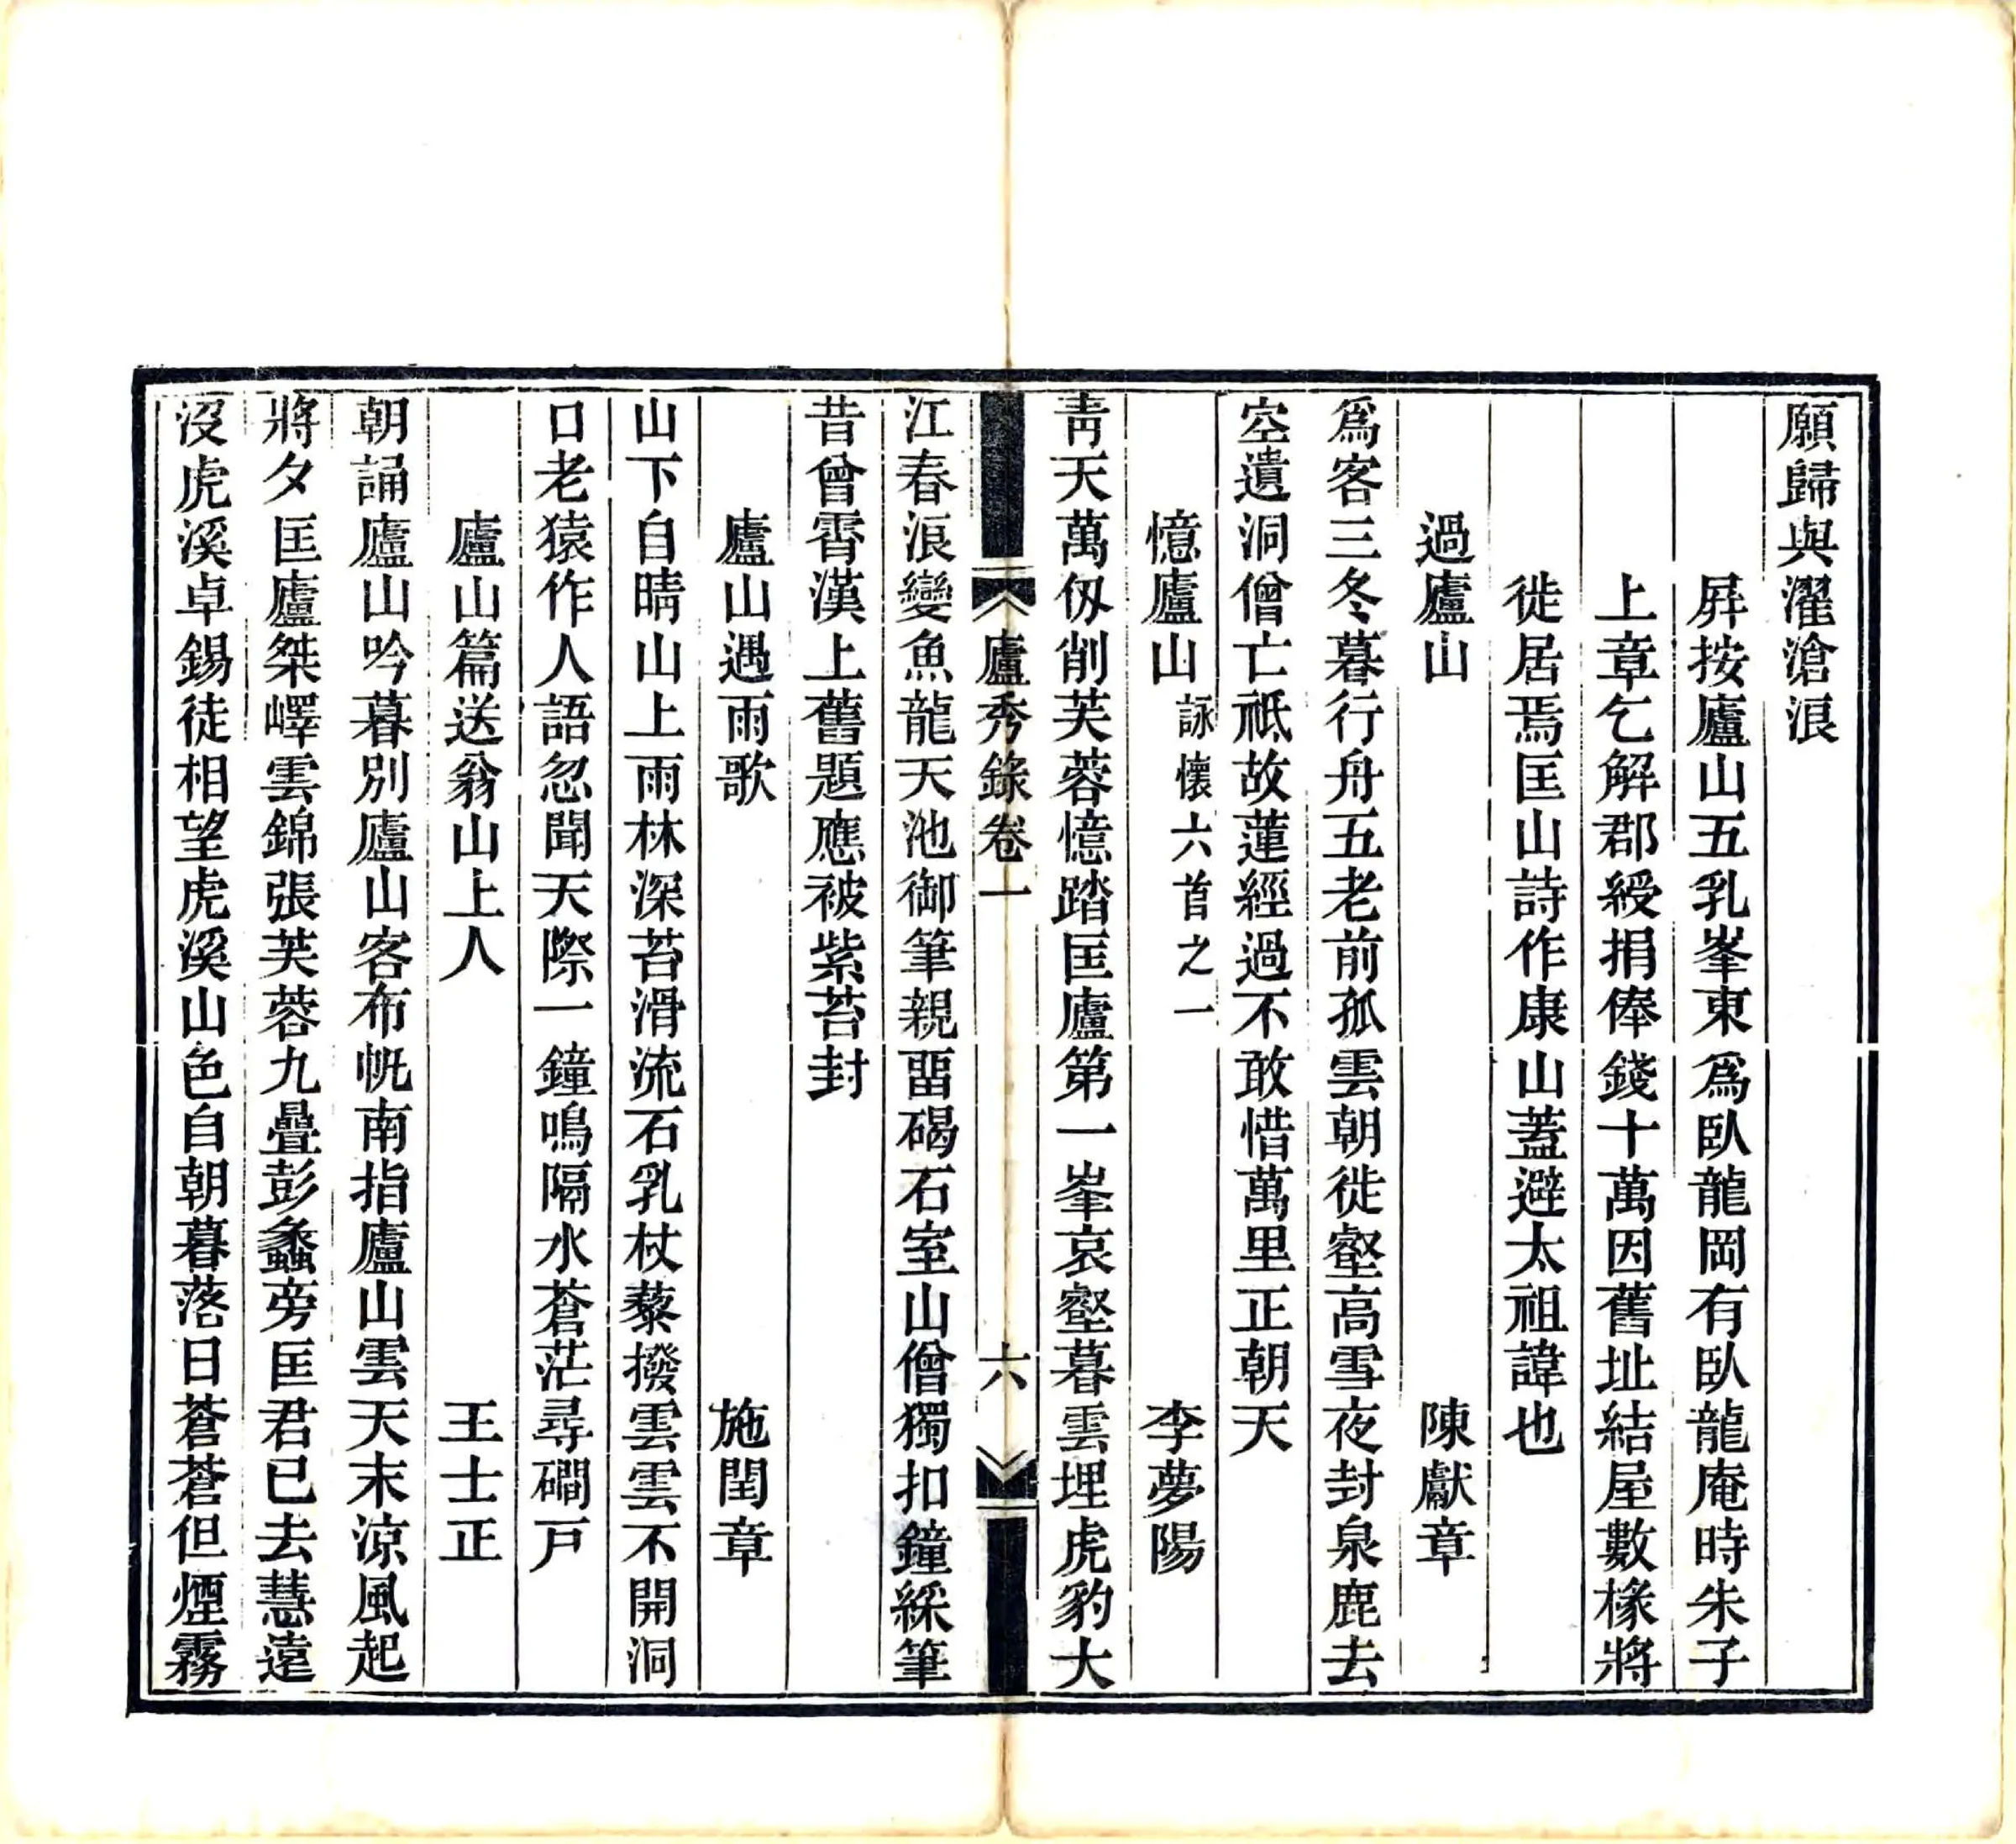 願歸與濯滄浪
屛按廬山五乳峯東爲臥龍岡有臥龍庵時朱子
上章乞解郡綬捐俸錢十萬因舊址結屋數椽將
徙居焉匡山詩作康山蓋避太祖諱也
過廬山　陳獻章
爲客三冬暮行舟五老前孤雲朝徙壑高雪夜封泉鹿去
空遺洞僧亡祗故蓮經過不敢惜萬里正朝天
憶廬山詠懷六首之一　李夢陽
靑天萬仭削芙蓉憶踏匡廬第一峯哀壑暮雲埋虎豹大
廬秀錄卷一　六
江春浪變魚龍天池御筆親畱碣石室山僧獨扣鐘綵筆
昔曾霄漢上舊題應被紫苔封
廬山遇雨歌　施閏章
山下自晴山上雨林深苔滑流石乳杖藜撥雲雲不開洞
口老猿作人語忽聞天際一鐘鳴隔水蒼茫尋磵戸
廬山篇送翁山上人　王士正
朝誦廬山吟暮別廬山客布帆南指廬山雲天末涼風起
將夕匡廬桀嶧雲錦張芙蓉九疊彭蠡旁匡君已去慧遠
沒虎溪卓錫徒相望虎溪山色自朝暮落日蒼蒼但煙霧